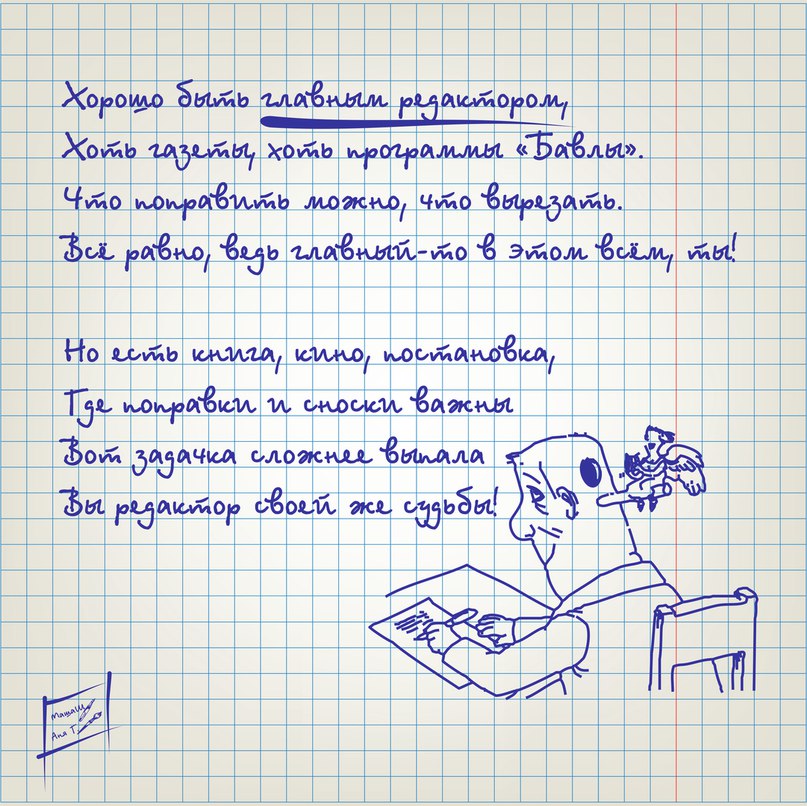 Хорошо быть главным редактором,
Хоть газеты, хоть программы «Бавлы».
Что поправить можно, что вырезать.
Всё равно, ведь главный-то в этом всём, ты!
Но есть книга, кино, постановка,
Где поправки и сноски важны
Вот задачка сложнее выпала
Вы редактор своей же судьбы!
МашаШ
Аня Т.